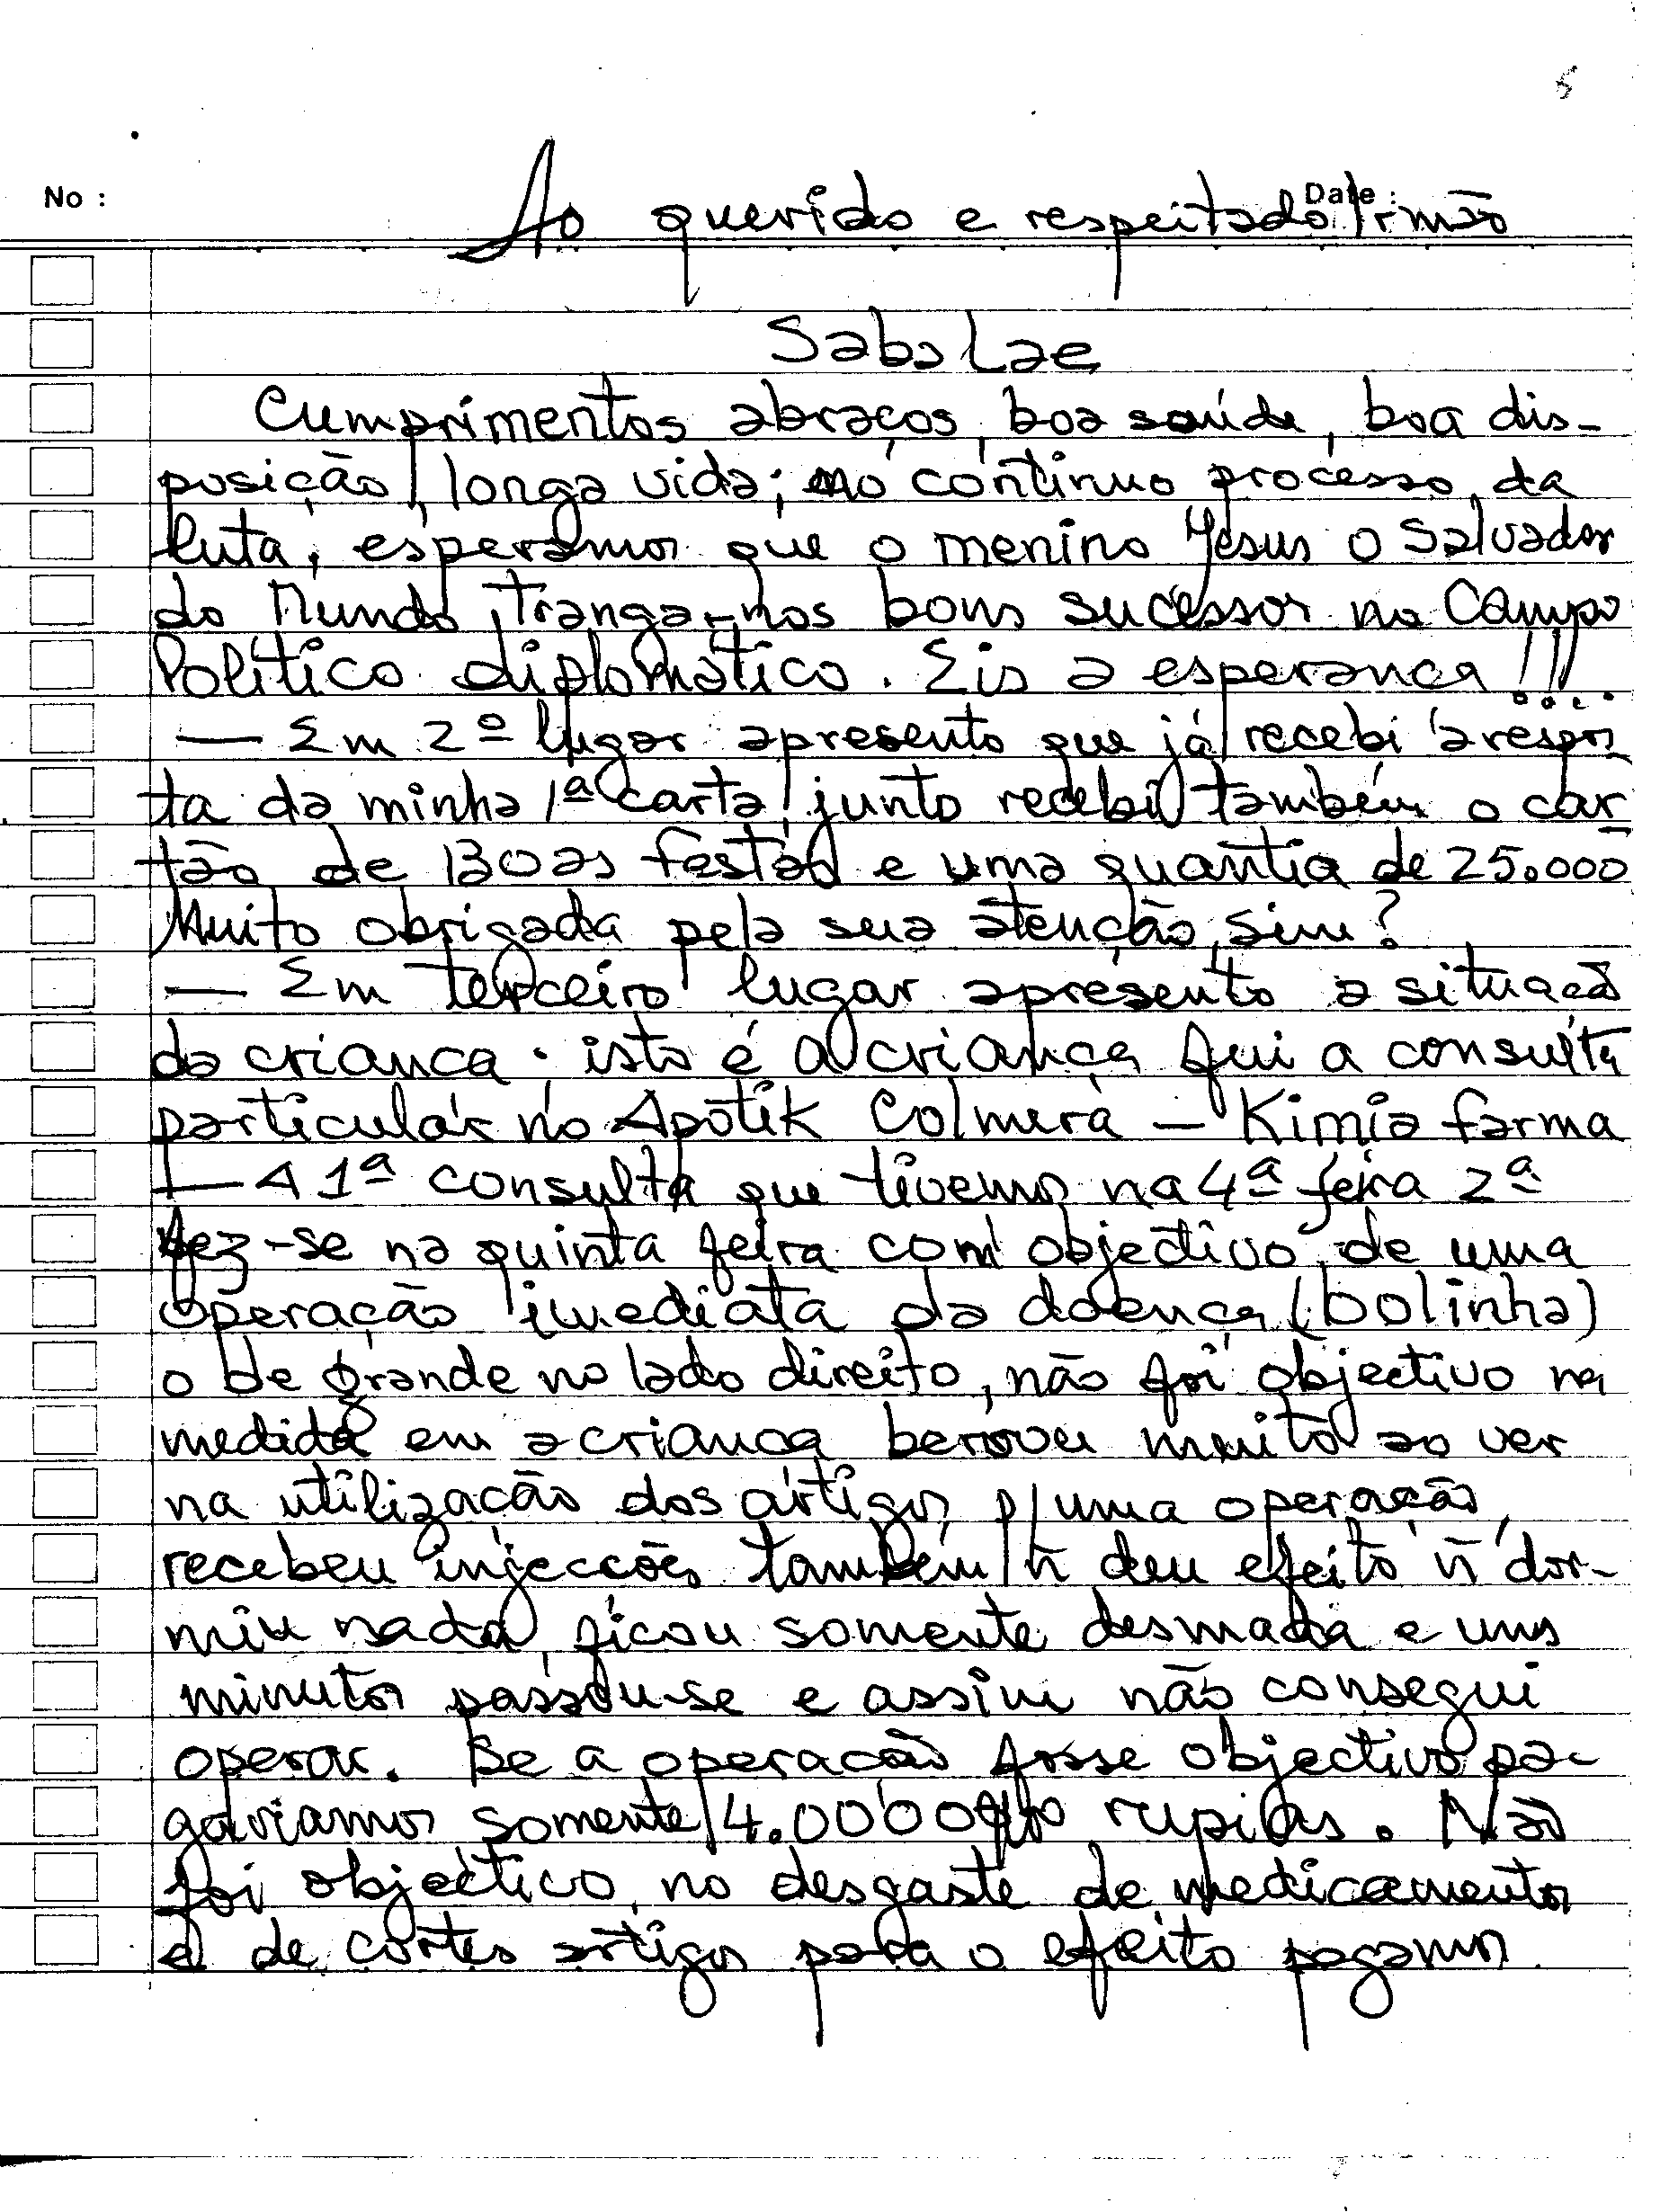 5
No :
Date :
Ao querido e respeitado Irmão
Sabalae
Cumprimentos abraços, boa saúde, boa dis-
posição, longa vida; no contínuo processo da
luta, esperamos que o menino Jesus o Salvador
do Mundo, tranga-nos bons sucessos no Campo
Político diplomático. Eis a esperança!!!...
— Em 2º lugar apresento que já recebi a respos
ta da minha 1ª carta, junto recebi também o car
tão de Boas festas e uma quantia de 25.000
Muito obrigada pela sua atenção, sim?
— Em terceiro lugar apresento a situação
da criança. isto é a criança fui a consulta
particular no Apotik Colmera — Kimia farma
— A 1ª consulta que tivemos na 4ª feira 2ª
fez-se na quinta feira com objectivo de uma
operação imediata da doença (bolinha)
o de grande no lado direito, não foi objectivo na
medida em a criança berrou muito ao ver
na utilização dos artigos p/ uma operação,
recebeu injecções também ñ deu efeito ñ dor-
miu nada, ficou somente desmaia e uns
minutos passou-se e assim não consegui
operar. Se a operação fosse objectivo pa-
gariamos somente 14.000 rupias. Não
foi objectivo, no desgaste de medicamentos
e de cortes artigos para o efeito pagamos